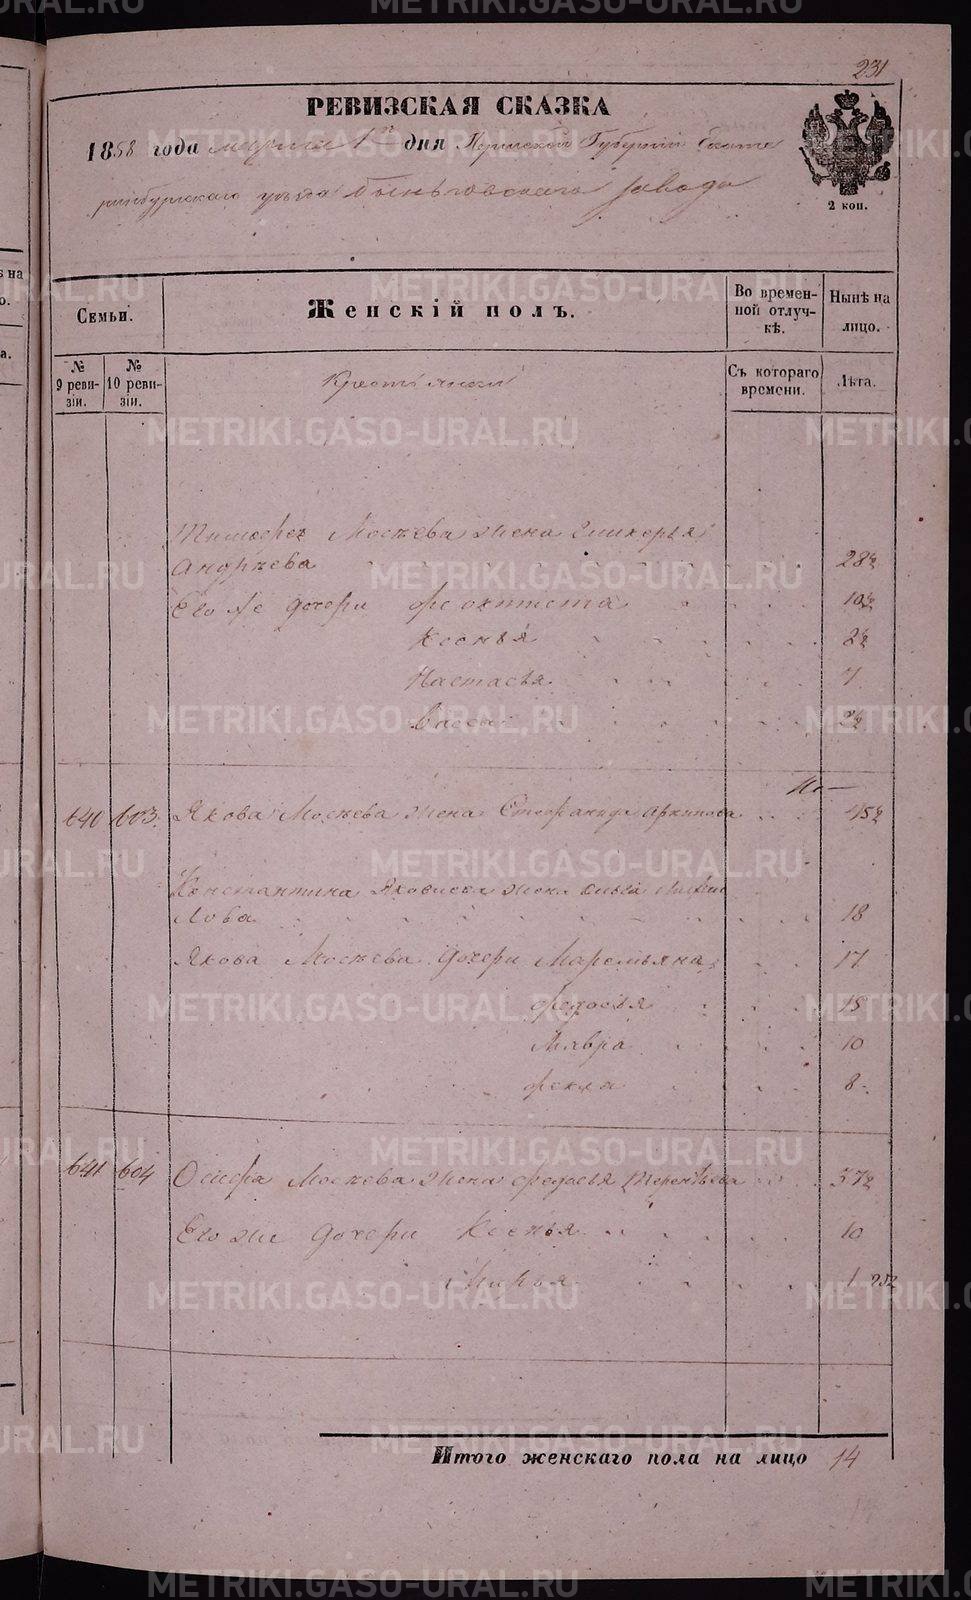 231
РЕВИЗСКАЯ СКАЗКА
1858 года марта 1го дня Пермской Губерніи Екате
ринбургскаго уѣзда Быньговскаго завода
2 коп.
Семьи.
Женскій полъ.
Во времен-
ной отлуч-
кѣ.
Нынѣ на
лицо.
№
9 реви-
зіи.
№
10 реви-
зіи.
Крестьяне
Съ котораго
времени.
Лѣта.
Тимофея Мосѣева жена Гликерья
Андрѣева 28½
Его же дочери Феоктиста 10½
Ксенья
Настасья 7
Васса
640 603. Якова Мосѣева жена Стефанида Архипова 45½
Константина Яковлева жена
лова 18
Якова Мосѣева дочери Маремьяна 17
Федосья 15
Мавра 10
Фекла 8
641 604 Осипа Мосѣева жена Федосья Терентьева 37½
Его же дочери Ксенья 10
Марья 1
Итого женскаго пола на лицо 14
METRIKI.GASO-URAL.RU